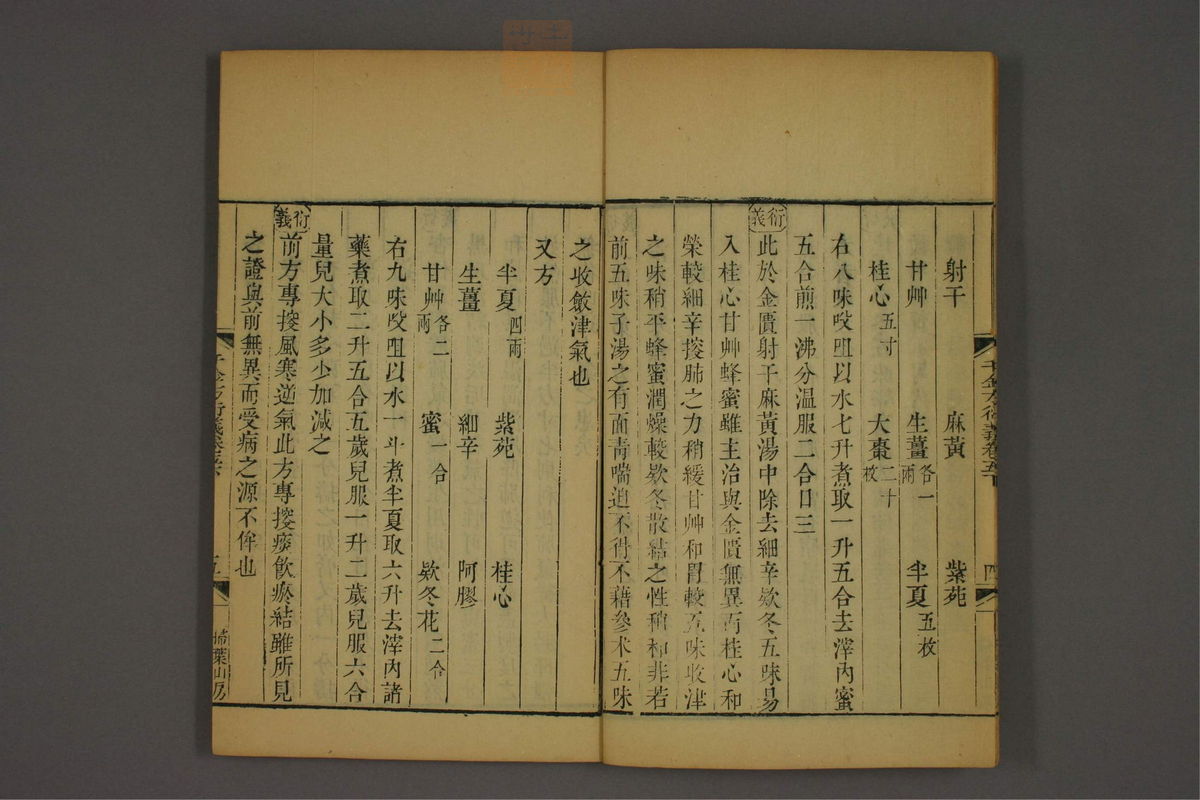 射干 麻黃 紫苑
甘艸 生薑各一兩 半夏五枚
桂心五寸 大棗二十枚
右八味㕮咀以水七升煮取一升五合去滓內蜜
五合煎一沸分温服二合日三
衍義
此於金匱射干麻黃湯中除去細辛欵冬五味易
入桂心甘艸蜂蜜雖主治與金匱無異而桂心和
榮較細辛搜肺之力稍緩甘艸和胃較五味收津
之味稍平蜂蜜潤燥較欵冬散結之性稍和非若
前五味子湯之有面青喘迫不得不藉參术五味
千金方衍義卷五下
四
之收斂津氣也
又方
半夏四兩 紫苑 桂心
生薑 細辛 阿膠
甘艸各二兩 蜜一合 欵冬花二合
右九味㕮咀以水一斗煮半夏取六升去滓內諸
藥煮取二升五合五歲兒服一升二歲兒服六合
量兒大小多少加減之
衍義
前方專搜風寒逆氣此方專搜痰飲瘀結雖所見
之證與前無異而受病之源不侔也
五
掃葉山房